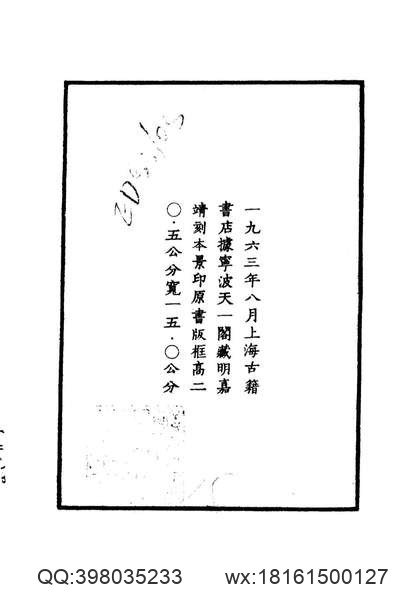 一九六三年八月上海古籍
書店據寧波天一閣藏明嘉
靖刻本景印原書版框高二
〇·五公分寬一五·〇公分
QQ:398035233 wx:18161500127